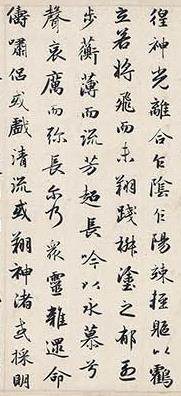 徨神光離合乍陰乍陽竦輕軀以鶴
立若將飛而未翔踐椒塗之郁烈
步蘅薄而流芳超長吟以永慕兮
聲哀厲而弥長尓乃衆靈雜遝命
儔嘯侶或戲清流或翔神渚或採明